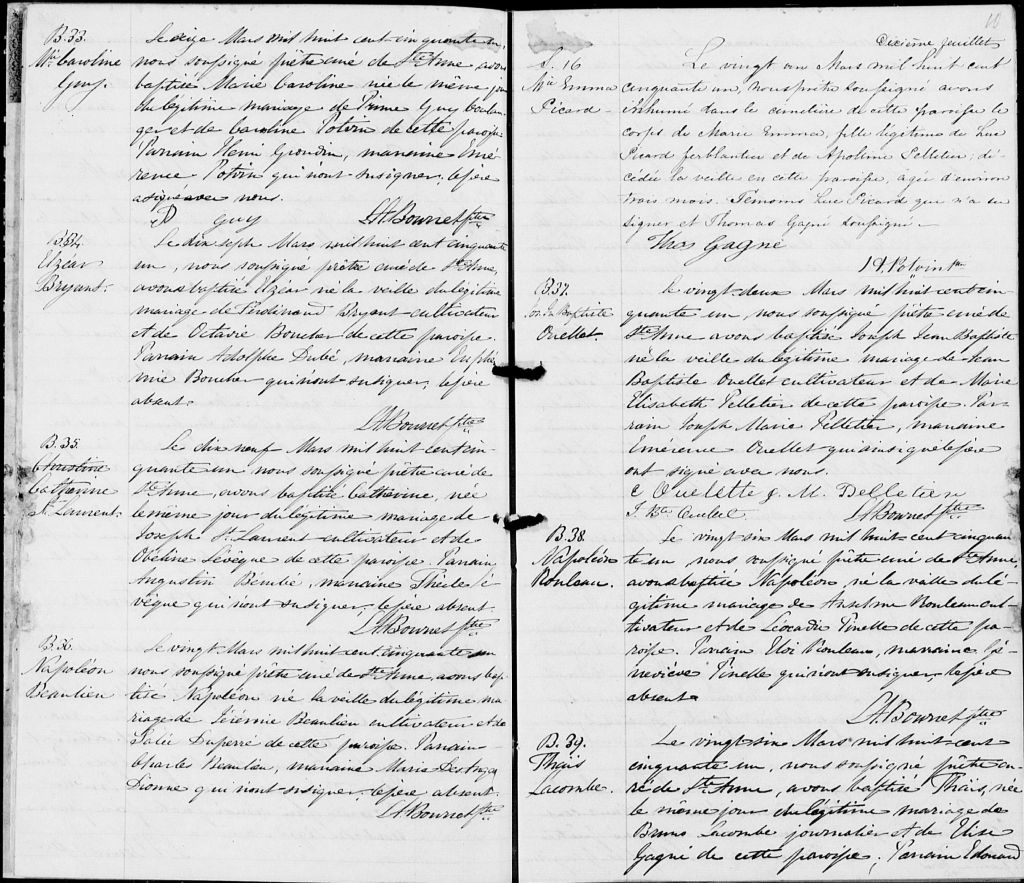 B.33.
Mie Caroline
Guy.
Le seize Mars mil huit cent cinquante un,
nous soussigné prêtre curé de Ste Anne, avons
baptisé Marie Caroline née le même jour
du légitime mariage de Prime Guy boulan-
ger et de Caroline Potvin de cette paroisse
Parrain Henri Grondin, marraine Emé-
rence Potvin qui n'ont su signer, le père
a signé avec nous.
P Guy
LA Bourret ptre
B.34.
Elzéar
Bryant.
Le dix sept Mars mil huit cent cinquante
un, nous soussigné prêtre curé de Ste Anne,
avons baptisé Elzéar né la veille du légitime
mariage de Ferdinand Bryant cultivateur
et de Octavie Boucher de cette paroisse.
Parrain Adolphe Dubé, marraine Euphé
mie Boucher qui n'ont su signer, le père
absent.
LA Bourret ptre
B.35.
Christine
Catherine
St Laurent.
Le dix neuf Mars mil huit cent cin-
quante un nous soussigné prêtre curé de
Ste Anne, avons baptisé Catherine, née
le même jour du légitime mariage de
Joseph St Laurent cultivateur et de
Obéline Lévêque de cette paroisse. Parrain
Augustin Bérubé, marraine Thècle Lé
vêque qui n'ont su signer, le père absent.
LA Bourret ptre
B.36.
Napoléon
Beaulieu
Le vingt Mars mil huit cent cinquante un
nous soussigné prêtre curé de Ste Anne, avons bap
tisé Napoléon né la veille du légitime ma-
riage de Jérémie Beaulieu cultivateur et de
Duperré de cette paroisse. Parrain
Charles Beaulieu, marraine Marie Des Anges
Dionne qui n'ont su signer, le père absent.
LA Bourret ptre
10
Dixième feuillet
S. 16
Mie Emma
Picard -
Le vingt un Mars mil huit cent
cinquante un, nous prêtre soussigné avons
inhumé dans le cimetière de cette paroisse le
corps de Marie Emma, fille légitime de Luc
Picard ferblantier et de Apoline Pelletier; dé-
cédée la veille en cette paroisse, agée d'environ
trois mois. Témoins Luc Picard que n'a su
signer et Thomas Gagné soussigné -
Thos Gagné
Potvin ptre
B.37.
Jos. Jn Baptiste
Ouellet.
Le vingt deux Mars mil huit cent cin-
quante un nous soussigné prêtre curé de
Ste Anne avons baptisé Joseph Jean Baptiste
né la veille du légitime mariage de Jean
Baptiste Ouellet cultivateur et de Marie
Elisabeth Pelletier de cette paroisse. Par-
rain Joseph Marie Pelletier, marraine
Emérence Ouellet qui ainsi que le père
ont signé avec nous.
E Ouelette J. M. Pelletier
J. Bte Ouelet
LA Bourret ptre
B.38.
Napoléon
Rouleau.
Le vingt six Mars mil huit cent cinquan
te un nous soussigné prêtre curé de Ste Anne,
avons baptisé Napoléon né la veille du lé-
gitime mariage de Anselme Rouleau cul-
tivateur et de Léocadie Pinelle de cette pa-
roisse. Parrain Eloi Rouleau, marraine Gé-
neviève Pinelle qui n'ont su signer, le père
absent.
LA Bourret ptre
B.39.
Thaïs
Lacombe.
Le vingt six Mars mil huit cent
cinquante un, nous soussigné prêtre cu-
ré de Ste Anne, avons baptisé Thaïs, née
le même jour du légitime mariage de
Bruno Lacombe journalier et de Elise
Gagné de cette paroisse; Parrain Edouard